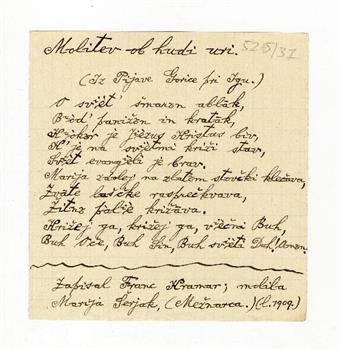 Molitev ob hudi uri. 525/31
(Iz Pijave Gorice pri Igu.)
O svjet' šmarzn ablák,
Bǝdd' panižen in kraták,
Kǝkǝr je Jezus Kristus biv,
K' je na svjetmi križi stav,
Svjet evangeli je brav.
Marija zdolej na zlatem stovčki klečava,
Zvate lasičke raspreckvava,
Žitnǝ palje križava.
Križej ga, križej ga, vječni Buh,
Buh Oče, Buh Sin, Buh svjeti Duh! Amǝn.
Zapisal Franc Kramar; molila
Marija Šerjak, (Mežnarca.) (l. 1909.)